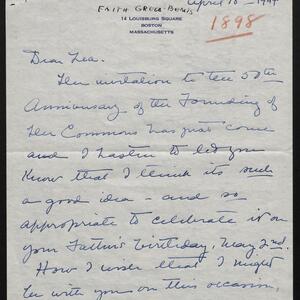 April 18 - 1944
1898
FAITH
14 LOUISBURG SQUARE
BOSTON
MASSACHUSETTS
Dear Lea.
The invitation to the 50th
Anniversary of the Founding of
the Commons has just come
and I hasten to let you
know that I think its such
a good idea - and so
appropriate to celebrate it on
your Father's birthday, May 2nd.
How I wish that I might
be with you on this occasion,